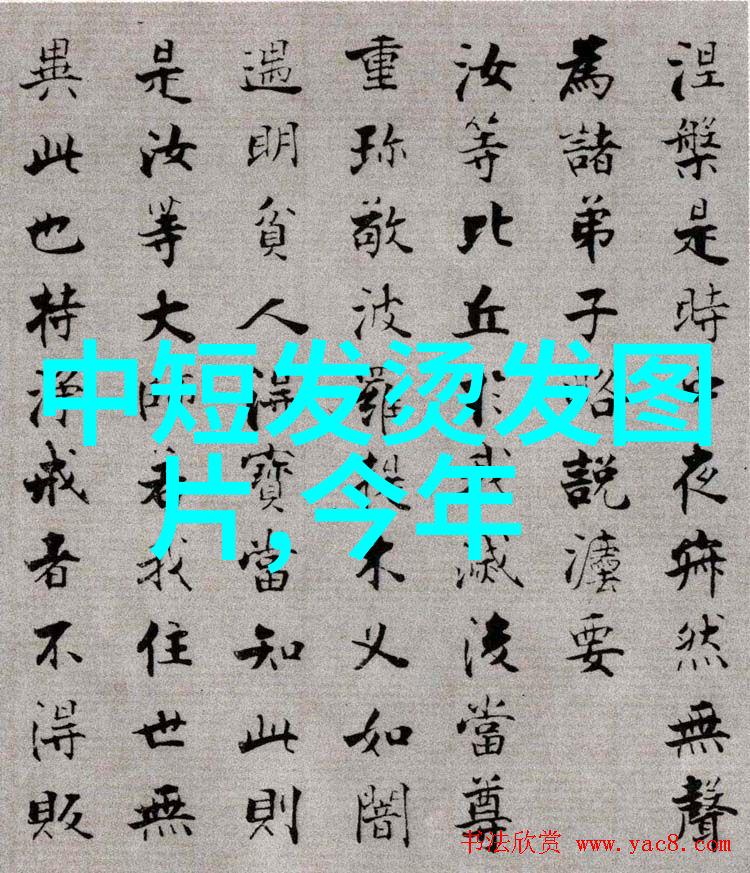 涅槃是時中夜寂然無聲
為諸弟子略說灋要
汝等比丘於我滅後當尊
重珍敬波羅提木叉如闇
遇明貧人得寶當知此則
是汝等大師若我住世無
異此也持淨戒者不得販
中短发烫发图
片,今年
书法欣赏 www.yac8.com